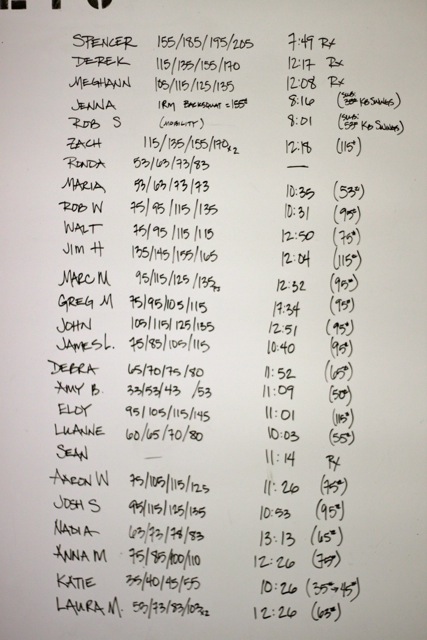 SPENCER 155/185/195/205 7:49 Rx
DEREK 115/135/155/170 12:17 Rx
MEGHANN 105/115/125/135 12:08 Rx
JENNA 1RM BACKSQUAT = 155# 8:16 (SUB: 35# KB SWINGS)
ROB S (MOBILITY) 8:01 (SUB: 53# KB SWINGS)
ZACH 115/135/155/170x2 12:18 (115#)
RONDA 53/63/73/83 —
MARIA 53/63/73/73 10:35 (53#)
ROB W 75/95/115/135 10:31 (95#)
WALT 75/95/115/115 12:50 (75#)
JIM H 135/145/155/165 12:04 (115#)
MARC M 95/115/125/135 12:32 (95#)
GREG M 75/95/105/115 17:34 (95#)
JOHN 105/115/125/135 12:51 (95#)
JAMES L. 75/85/105/115 10:40 (95#)
DEBRA 65/70/75/80 11:52 (65#)
AMY B. 33/53/43 /53 11:09 (50#)
ELOY 95/105/115/145 11:01 (115#)
LUANNE 60/65/70/80 10:03 (55#)
SEAN — 11:14 Rx
AARON W 75/105/115/125 11:26 (75#)
JOSH S 95/115/125/135 10:53 (95#)
NADIA 63/73/78/83 13:13 (65#)
ANNA M 75/85/100/110 12:26 (75#)
KATIE 35/40/45/55 10:26 (35#→45#)
LAURA M. 55/73/83/103x2 12:26 (63#)